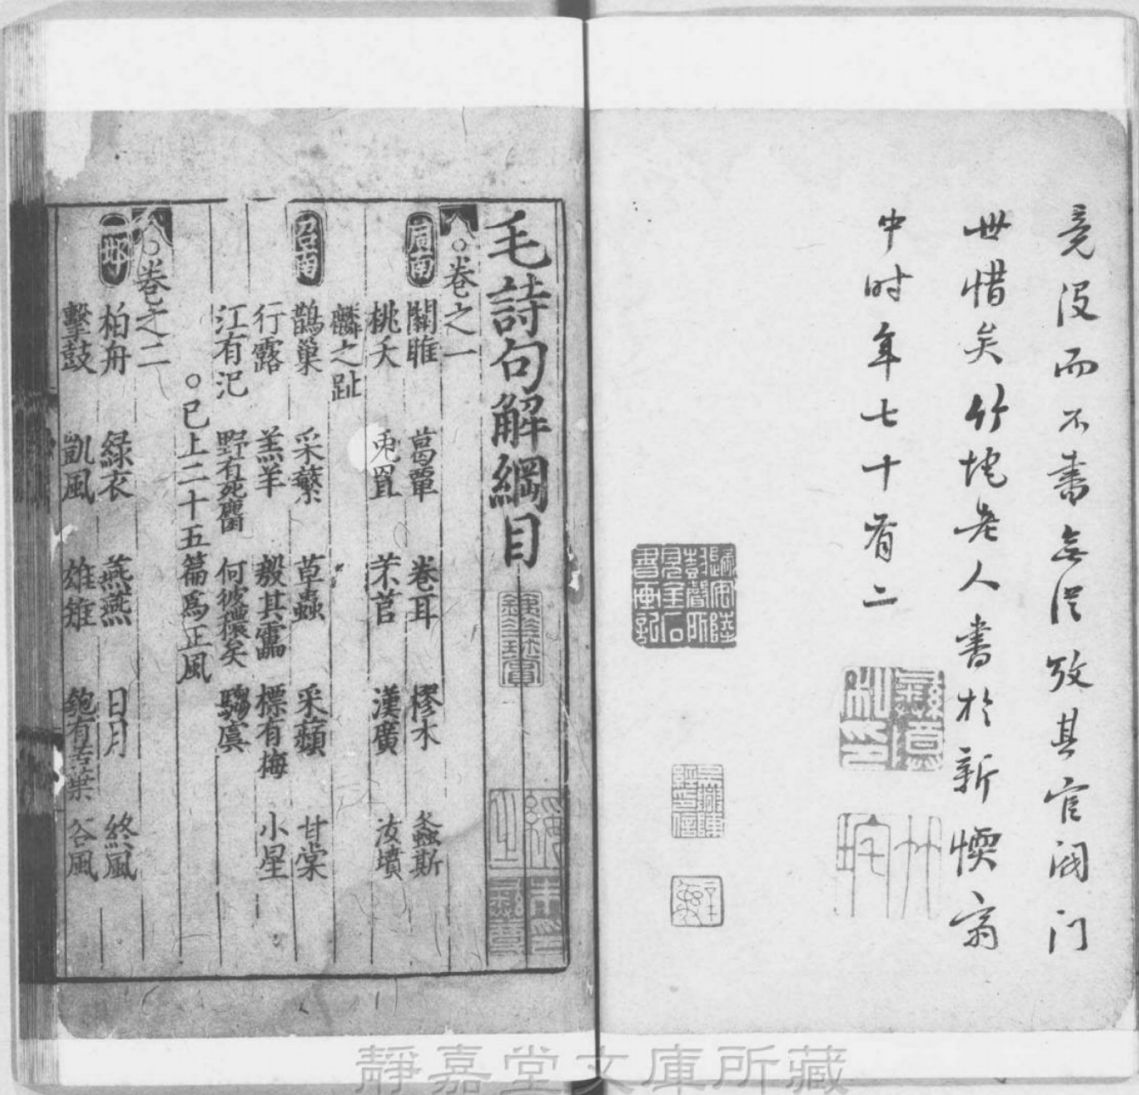 竟沒而不書無從攷其官閥門
世惜矣竹垞老人書於新愞齋
中时年七十有二
彝尊私印
竹垞
毛詩句解綱目
○卷之一
周南 關雎 葛覃 卷耳 樛木 螽斯
桃夭 兎罝 芣苢 漢廣 汝墳
麟之趾
召南 鵲巢 采蘩 草蟲 采蘋 甘棠
行露 羔羊 殷其靁 摽有梅 小星
江有汜 野有死麕 何彼襛矣 騶虞
○已上二十五篇爲正風
○卷之二
邶 柏舟 綠衣 燕燕 日月 終風
擊鼓 凱風 雄雉 匏有苦葉 谷風
靜嘉堂文庫所藏